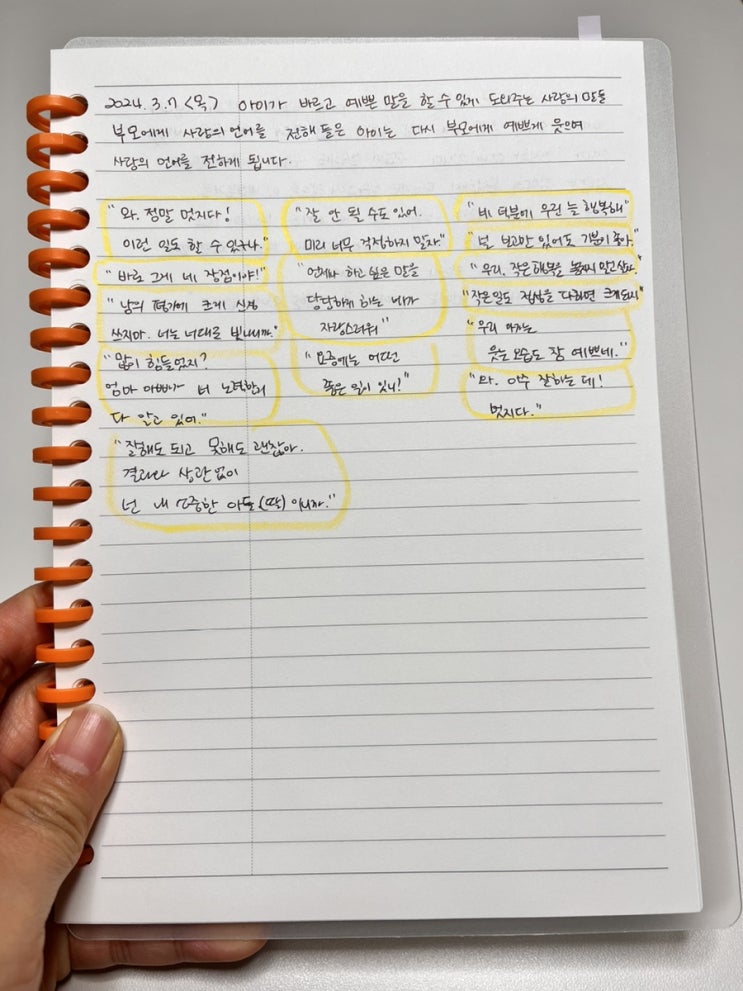 2024. 3. 7 <목> 아이가 바르고 예쁜 말을 할 수 있게 도와주는 사랑의 말들
부모에게 사랑의 언어를 전해 들은 아이는 다시 부모에게 예쁘게 웃으며
사랑의 언어를 전하게 됩니다.
"와. 정말 멋지다!
이런 일도 할 수 있구나."
"바로 그게 네 장점이야!"
"남의 평가에 크게 신경
쓰지마. 너는 너대로 빛나니까."
"많이 힘들었지?
엄마 아빠가 너 노력한거
다 알고 있어."
"잘해도 되고 못해도 괜찮아.
결과와 상관없이
넌 내 소중한 아들(딸)이니까."
"잘 안 될 수도 있어.
미리 너무 걱정하지 말자."
"언제나 하고 싶은 말을
당당하게 하는 네가
자랑스러워"
"요즘에는 어떤
좋은 일이 있니?"
"네 덕분에 우린 늘 행복해"
"널 보고만 있어도 기분이 좋아."
"우리, 작은 행복을 놓치지 말고 살자."
"작은 일도 정성을 다하면 크게 되지"
"우리 아가는
웃는 모습도 참 예쁘네."
"와. 아주 잘하는 데!
멋지다."